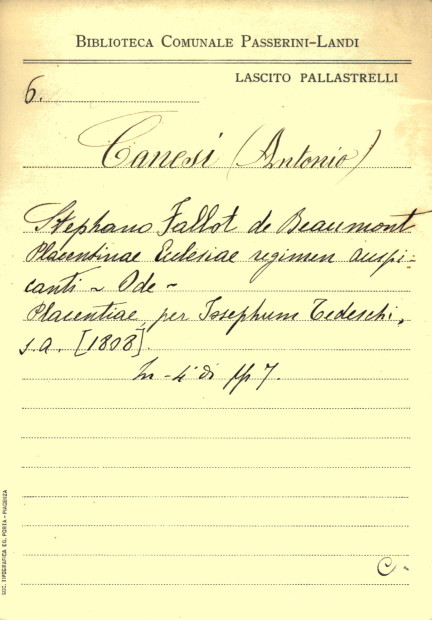 BIBLIOTECA COMUNALE PASSERINI-LANDI
LASCITO PALLASTRELLI
6.
Canesi (Antonio)
Stephano Fallot de Beaumont
Placentinae Ecclesiae regimen auspi-
canti - Ode -
Placentiae, per Josephum Tedeschi,
s.a. [1808].
In-4° di pp 7.
C-
SOC. TIPOGRAFICA ED. PORTA - PIACENZA